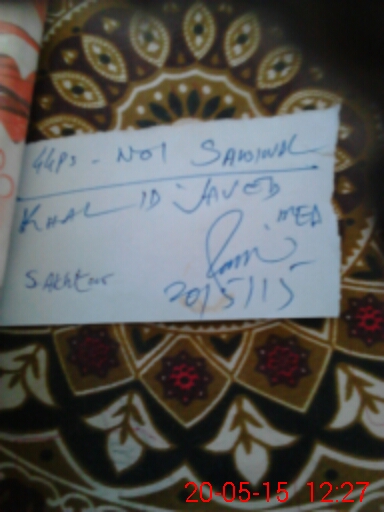 GGPS - NO1 SAHIWAL
KHALID JAVED
MEA
S. Akhtar
20/5/15
20-05-15 12:27